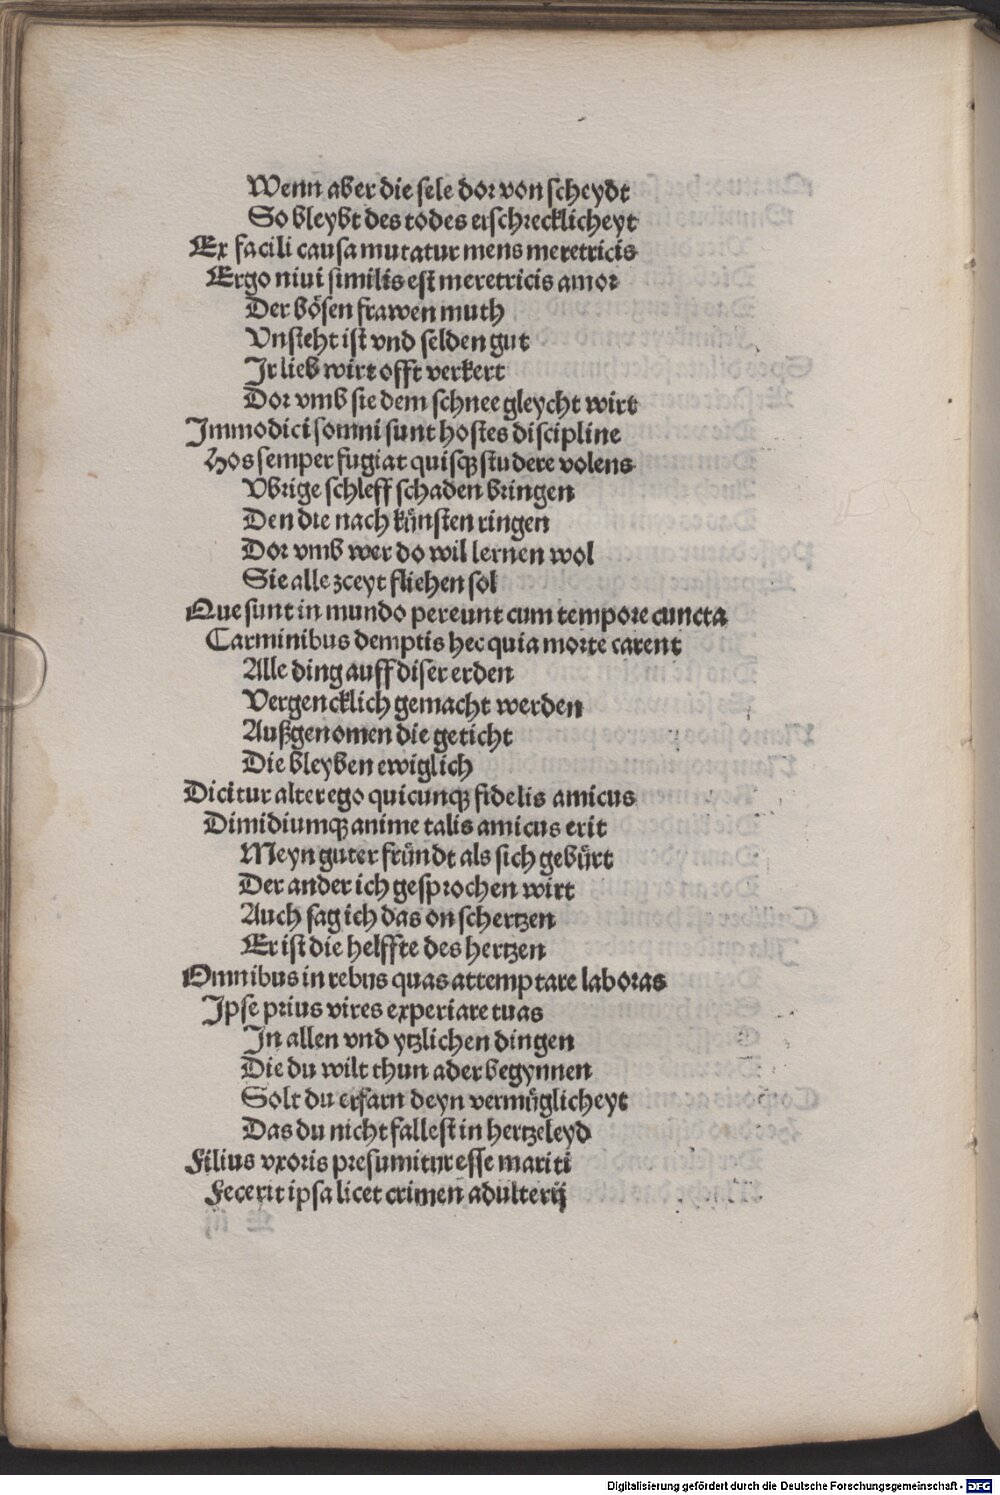 Wenn aber die sele dor von scheydt
So bleybt des todes erschrecklicheyt
Ex facili causa mutatur mens meretricis
Ergo nivi similis est meretricis amor
Der bösen frawen muth
Vnsteht ist vnd selden gut
Ir lieb wirt offt verkert
Dor vmb sie dem schnee gleycht wirt
Immodici somni sunt hostes discipline
Hos semper fugiat quisqꝫ studere volens
Vbrige schleff schaden bringen
Den die nach künsten ringen
Dor vmb wer do wil lernen wol
Sie alle zceyt fliehen sol
Que sunt in mundo pereunt cum tempore cuncta
Carminibus demptis hec quia morte carent
Alle ding auff diser erden
Vergencklich gemacht werden
Außgenomen die geticht
Die bleyben ewiglich
Dicitur alter ego quicunqꝫ fidelis amicus
Dimidiumqꝫ anime talis amicus erit
Meyn guter fründt als sich gebürt
Der ander ich gesprochen wirt
Auch sag ich das on schertzen
Er ist die helffte des hertzen
Omnibus in rebus quas attemptare laboras
Ipse prius vires experiare tuas
In allen vnd ytzlichen dingen
Die du wilt thun ader begynnen
Solt du erfarn deyn vermüglicheyt
Das du nicht fallest in hertzeleyd
Filius vxoris presumitur esse mariti
Fecerit ipsa licet crimen adulterij
Digitalisierung gefördert durch die Deutsche Forschungsgemeinschaft - DFG